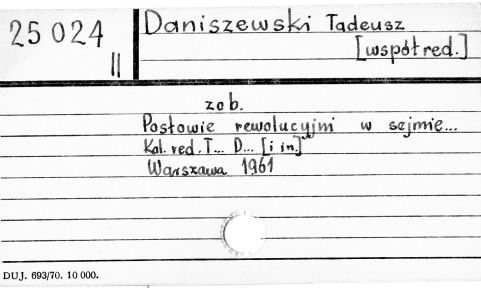 25 024
II
Daniszewski Tadeusz
[współred.]
zob.
Posłowie rewolucyjni w sejmie...
Kol. red. T... D... [i in.]
Warszawa 1961
DUJ. 693/70. 10 000.